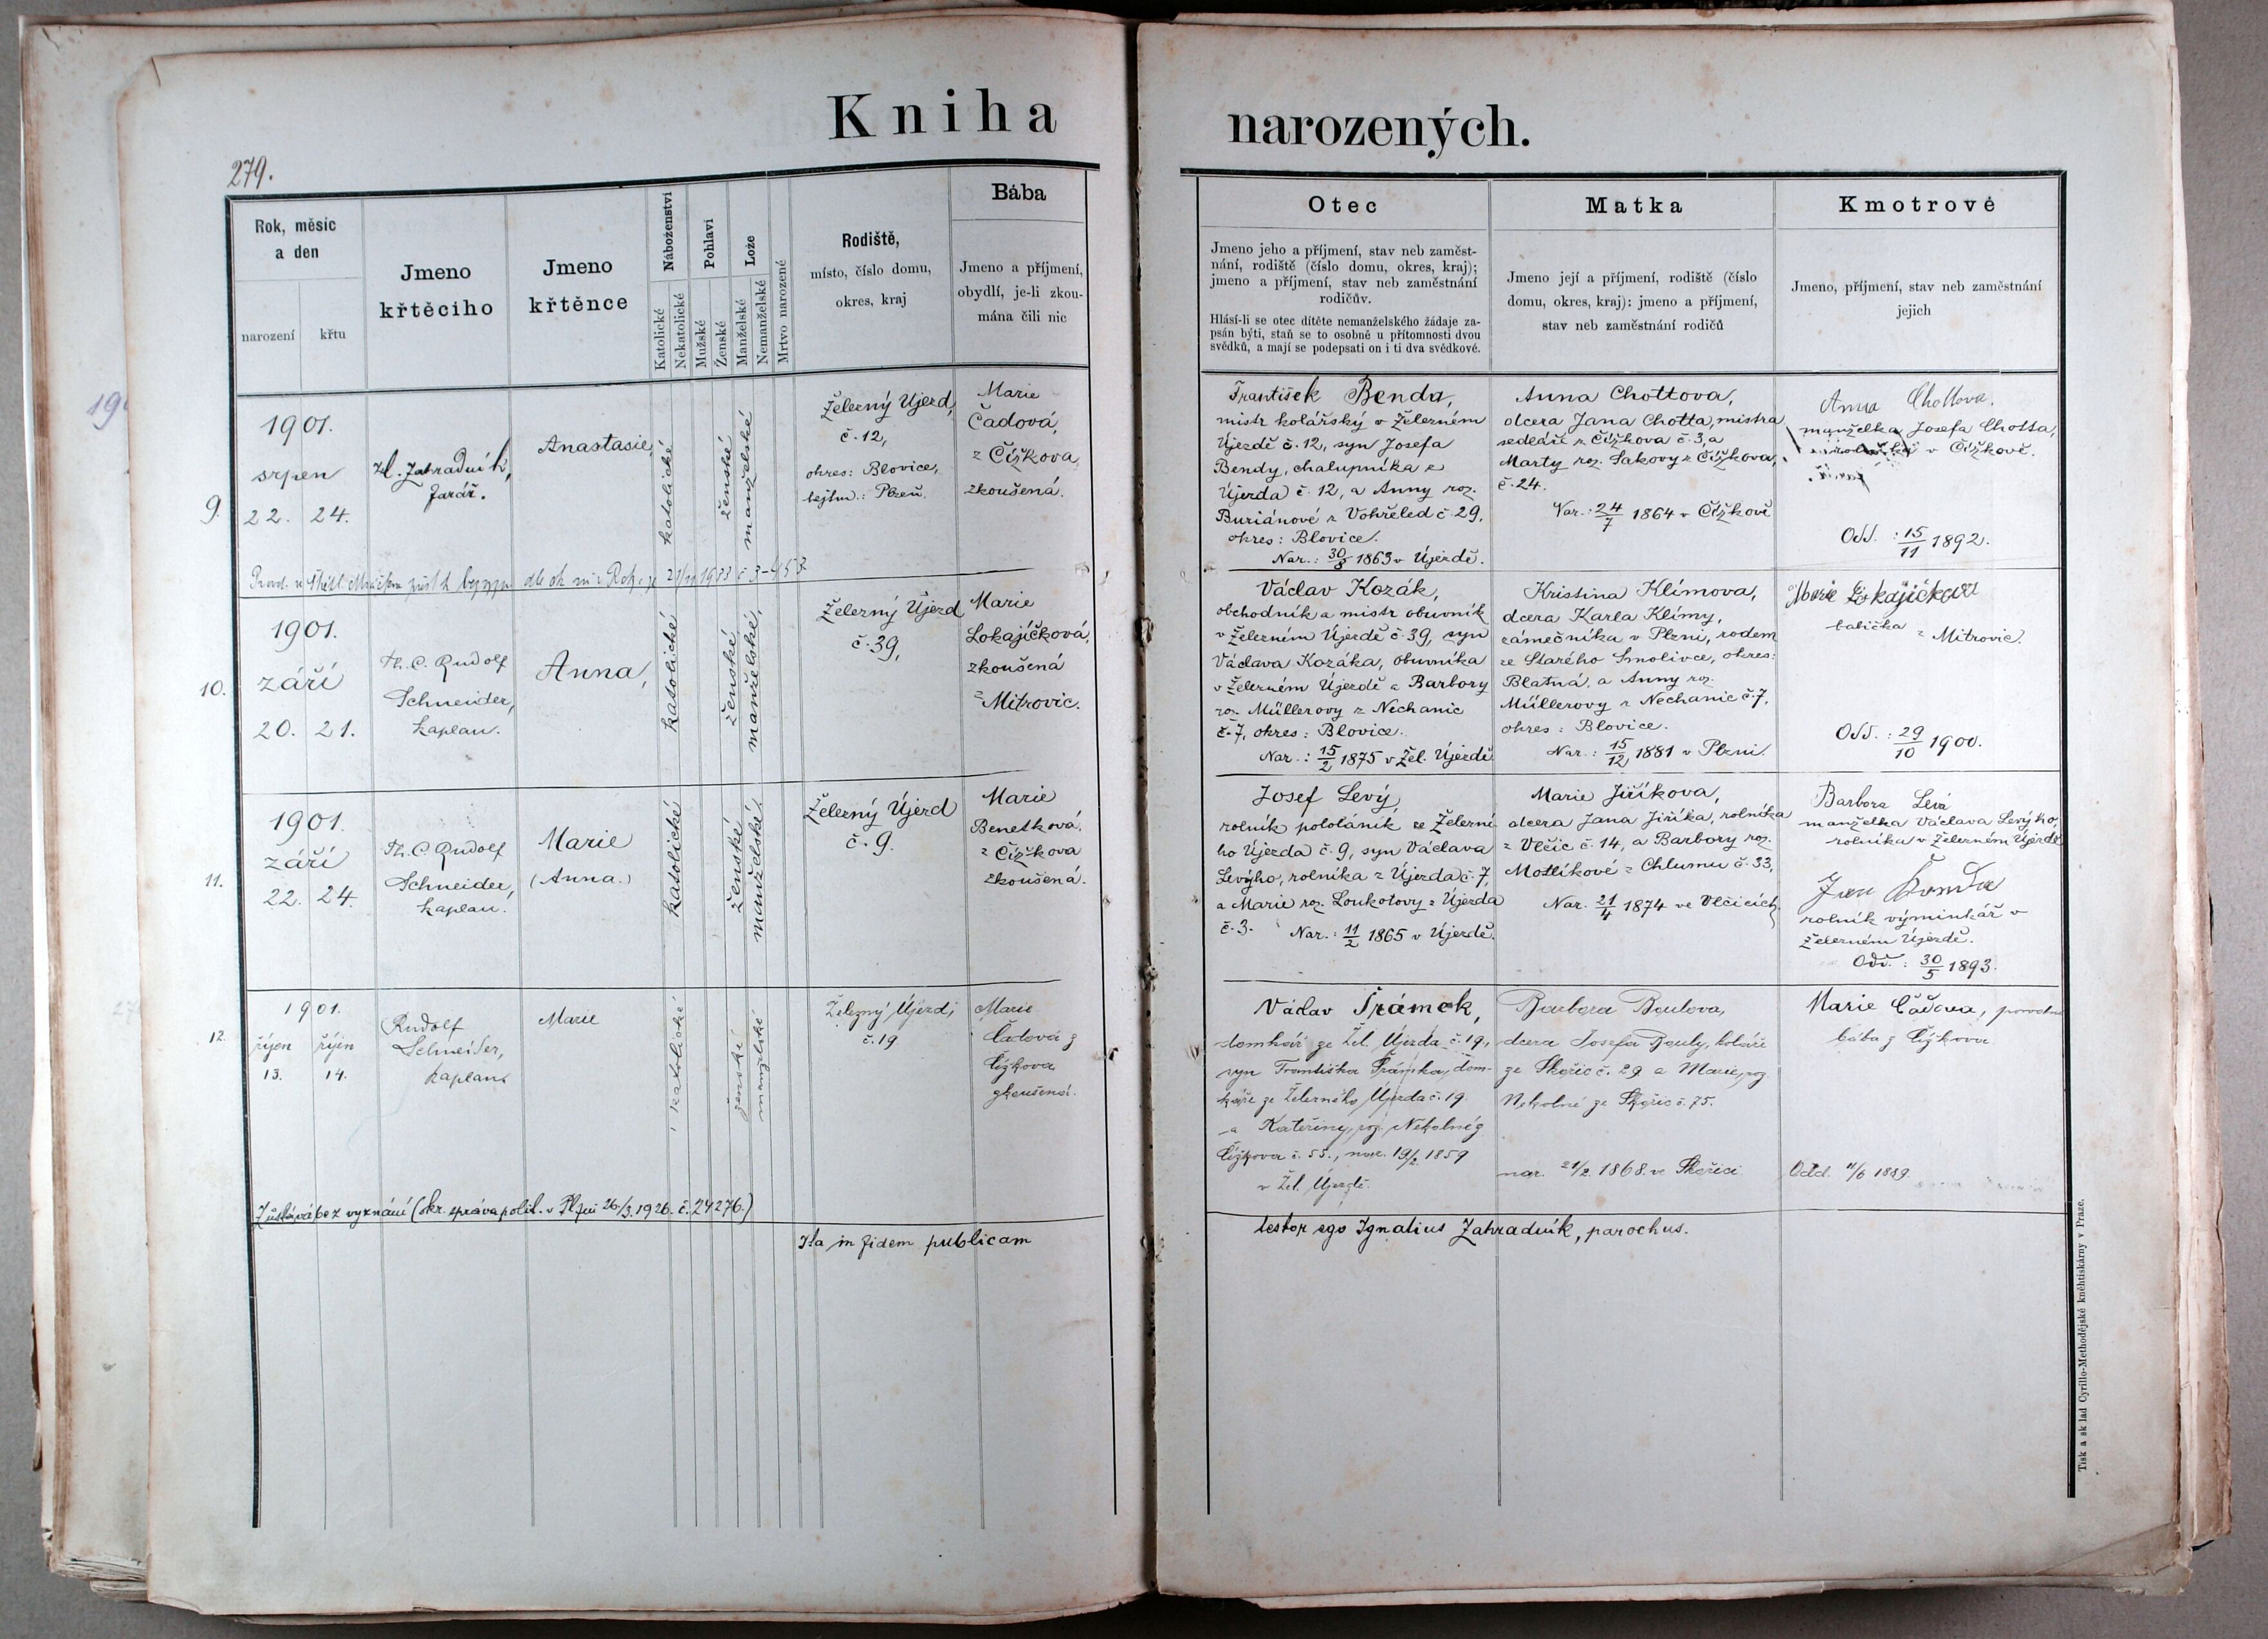 Kniha narozených.
279.
Rok, měsíc
a den
narození
křtu
Jmeno
křtěciho
Jmeno
křtěnce
Náboženství
Katolické
Nekatolické
Pohlaví
Mužské
Ženské
Lože
Manželské
Nemanželské
Mrtvo narozené
Rodiště,
místo, číslo domu,
okres, kraj
Bába
Jmeno a příjmení,
obydlí, je-li zkou-
mána čili nic
Otec
Jmeno jeho a příjmení, stav neb zaměst-
nání, rodiště (číslo domu, okres, kraj);
jmeno a příjmení, stav neb zaměstnání
rodičův.
Hlásí-li se otec dítěte nemanželského žádaje za-
psán býti, staň se to osobně u přítomnosti dvou
svědků, a mají se podepsati on i ti dva svědkové.
Matka
Jmeno její a příjmení, rodiště (číslo
domu, okres, kraj): jmeno a příjmení,
stav neb zaměstnání rodičů
Kmotrové
Jmeno, příjmení, stav neb zaměstnání
jejich
9.
1901.
srpen
22. 24.
Zahradník,
farář.
Anastasie,
katolické
ženské
manželské
Železný Újezd,
č. 12,
okres: Blovice,
hejtm.: Plzeň.
Marie
Čadová,
z Čížkova,
zkoušená.
František Benda,
mistr kolářský v Železném
Újezdě č. 12, syn Josefa
Bendy, chalupníka z
Újezda č. 12, a Anny roz.
Buriánové z Vohřeled č. 29,
okres: Blovice.
Nar.: 1863 v Újezdě.
Anna Chottova,
dcera Jana Chotta, mistra
z Čížkova č. 3, a
Marty roz. Sakovy z Čížkova,
č. 24.
Nar.: 24/7 1864 v Čížkově
Anna Chottova,
manželka Josefa Chotta,
v Čížkově.
Odd.: 15/11 1892.
10.
1901.
září
20. 21.
Th. C. Rudolf
Schneider,
kaplan.
Anna,
katolické
ženské
manželské,
Železný Újezd
č. 39,
Marie
Lokajíčková,
zkoušená
z Mitrovic.
Václav Kozák,
obchodník a mistr obuvník
v Železném Újezdě č. 39, syn
Václava Kozáka, obuvníka
v Železném Újezdě a Barbory
roz. Müllerovy z Nechanic
č. 7, okres: Blovice.
Nar.: 15/2 1875 v Žel. Újezdě
Kristina Klímova,
dcera Karla Klímy,
zámečníka v Plzni, rodem
ze Starého Smolivce, okres:
Blatná, a Anny roz.
Müllerovy z Nechanic č. 7,
okres: Blovice.
Nar.: 15/12 1881 v Plzni.
Marie Lokajíčková
babička z Mitrovic.
Odd.: 29/10 1900.
11.
1901.
září
22. 24.
Th. C. Rudolf
Schneider,
kaplan.
Marie
(Anna.)
katolické
ženské
manželské
Železný Újezd
č. 9.
Marie
Benetková,
z Čížkova
zkoušená.
Josef Levý,
rolník pololáník ze Železné-
ho Újezda č. 9, syn Václava
Levýho, rolníka z Újezda č. 7,
a Marie roz. Loukotovy z Újezda
č. 3. Nar.: 11/2 1865 v Újezdě.
Marie Jiříkova,
dcera Jana Jiříka, rolníka
z Vlčic č. 14, a Barbory roz.
Motlíkové z Chlumu č. 33,
Nar. 21/4 1874 ve Vlčicích
Barbora Levá
manželka Václava Levýho,
rolníka v Železném Újezdě
Jan
rolník výminkář v
Železném Újezdě.
Odd.: 30/5 1893.
12.
1901.
říjen říjen
13. 14.
Rudolf
Schneider,
kaplan
Marie
katolické
ženské
manželské
Železný Újezd;
č. 19
Marie
Čadová z
Čížkova
zkoušená.
Václav Šrámek,
domkář ze Žel. Újezda č. 19,
syn Františka Šrámka, dom-
káře ze Železného Újezda č. 19
a Kateřiny, roz. Nekolné z
Čížkova č. 55., nar. 19/2 1859
v Žel. Újezdě.
Barbora Boulova,
dcera Josefa Bouly, koláře
ze Skořic č. 29 a Marie, roz.
Nekolné ze Skořic č. 75.
nar. 21/2 1868 ve Skořici
Marie Čadova, porodní
bába z Čížkova
Odd. 11/6 1889.
Zůstává bez vyznání (okr. správa polit. v Plzni 26/3. 1926. č. 24276.)
Ita in fidem publicam
testor ego Ignatius Zahradník, parochus.
Tisk a sklad Cyrillo-Methodějské knihtiskárny v Praze.